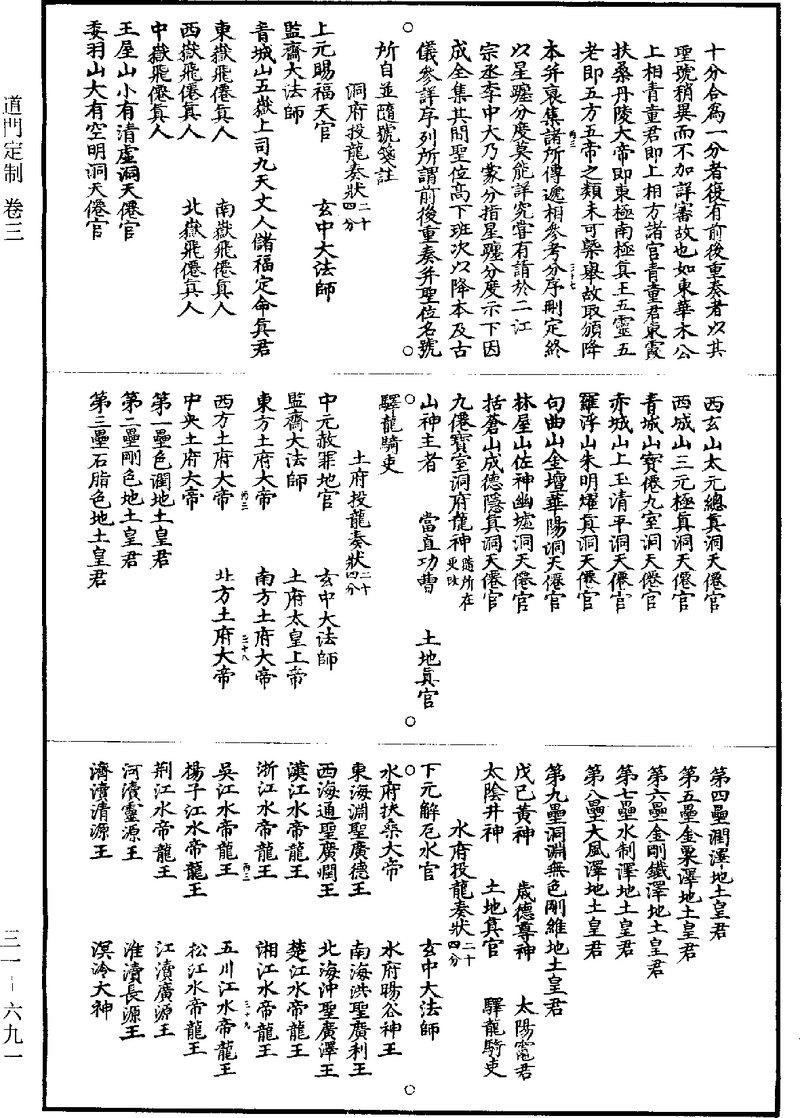 十分合為一分者復有前後重奏者以其
聖號稍異而不加詳審故也如東華木公
上相青童君即上相方諸宮青童君東霞
扶桑丹陵大帝即東極南極真王五靈五
老即五方五帝之類未可槩舉故取頒降
本并裒集諸所傳遞相參考分序刪定終
以星躔分度莫能詳究嘗有請於二江
宗丞李中大乃蒙分指星躔分度示下因
成全集其間聖位高下班次以降本及古
儀參詳序列所謂前後重奏并聖位名號
所自並隨號箋註
洞府投龍奏狀二十四分
上元賜福天官 玄中大法師
監齋大法師
青城山五嶽上司九天丈人儲福定命真君
東嶽飛僊真人 南嶽飛僊真人
西嶽飛僊真人 北嶽飛僊真人
中嶽飛僊真人
王屋山小有清虛洞天僊官
委羽山大有空明洞天僊官
西玄山太元總真洞天僊官
西城山三元極真洞天僊官
青城山寶僊九室洞天僊官
赤城山上玉清平洞天僊官
羅浮山朱明耀真洞天僊官
句曲山金壇華陽洞天僊官
林屋山佐神幽墟洞天僊官
括蒼山成德隱真洞天僊官
九僊寶室洞府龍神隨所在更改
山神主者 當直功曹 土地真官
驛龍騎吏
土府投龍奏狀二十四分
中元赦罪地官 玄中大法師
監齋大法師 土府太皇上帝
東方土府大帝 南方土府大帝
西方土府大帝 北方土府大帝
中央土府大帝
第一壘色潤地土皇君
第二壘剛色地土皇君
第三壘石脂色地土皇君
第四壘潤澤地土皇君
第五壘金粟澤地土皇君
第六壘金剛鐵澤地土皇君
第七壘水制澤地土皇君
第八壘大風澤地土皇君
第九壘洞淵無色剛維地土皇君
戊己黃神 歲德尊神 太陽竈君
太陰井神 土地真官 驛龍騎吏
水府投龍奏狀二十四分
下元解厄水官 玄中大法師
水府扶桑大帝 水府暘谷神王
東海淵聖廣德王 南海洪聖廣利王
西海通聖廣潤王 北海沖聖廣澤王
漢江水帝龍王 楚江水帝龍王
浙江水帝龍王 湘江水帝龍王
吳江水帝龍王 五川江水帝龍王
楊子江水帝龍王 松江水帝龍王
荆江水帝龍王 江瀆廣源王
河瀆靈源王 淮瀆長源王
濟瀆清源王 溟泠大神
道門定制 卷三
三一－六九一